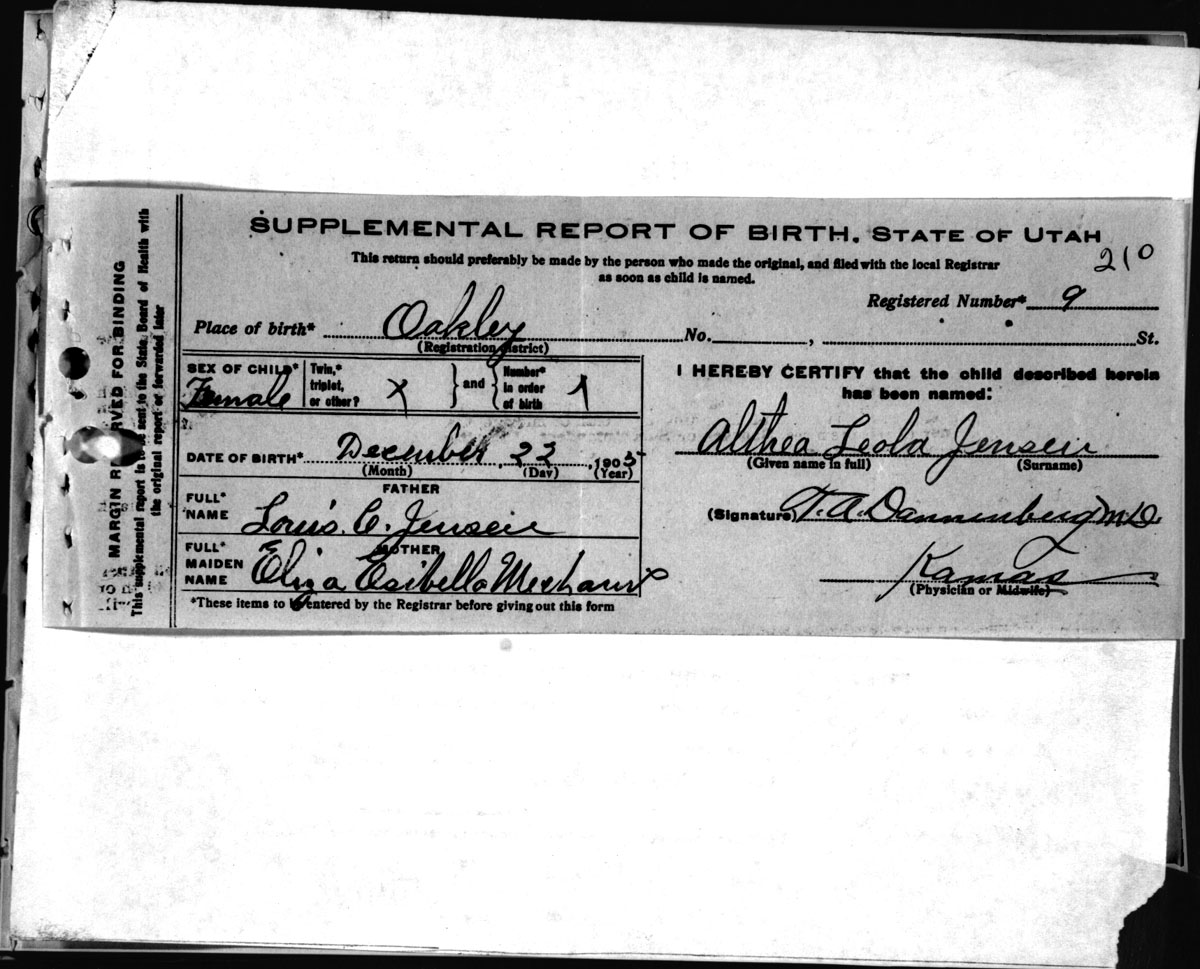 SUPPLEMENTAL REPORT OF BIRTH, STATE OF UTAH
210
This return should preferably be made by the person who made the original, and filed with the local Registrar
as soon as child is named.
Registered Number* 9
Place of birth* Oakley No. , St.
(Registration District)
SEX OF CHILD* Female
Twin,* triplet, or other? X } and { Number* in order of birth 1
DATE OF BIRTH* December, 22, 1905
(Month) (Day) (Year)
FATHER
FULL* NAME Louis. C. Jensen
MOTHER
FULL* MAIDEN NAME Eliza Esibella
*These items to be entered by the Registrar before giving out this form
I HEREBY CERTIFY that the child described herein
has been named:
Althea Leola Jensen
(Given name in full) (Surname)
(Signature) T. A. Dannenberg M.D.
Kamas
(Physician or Midwife)
MARGIN RESERVED FOR BINDING
This supplemental report is to be sent to the State Board of Health with
the original report or forwarded later